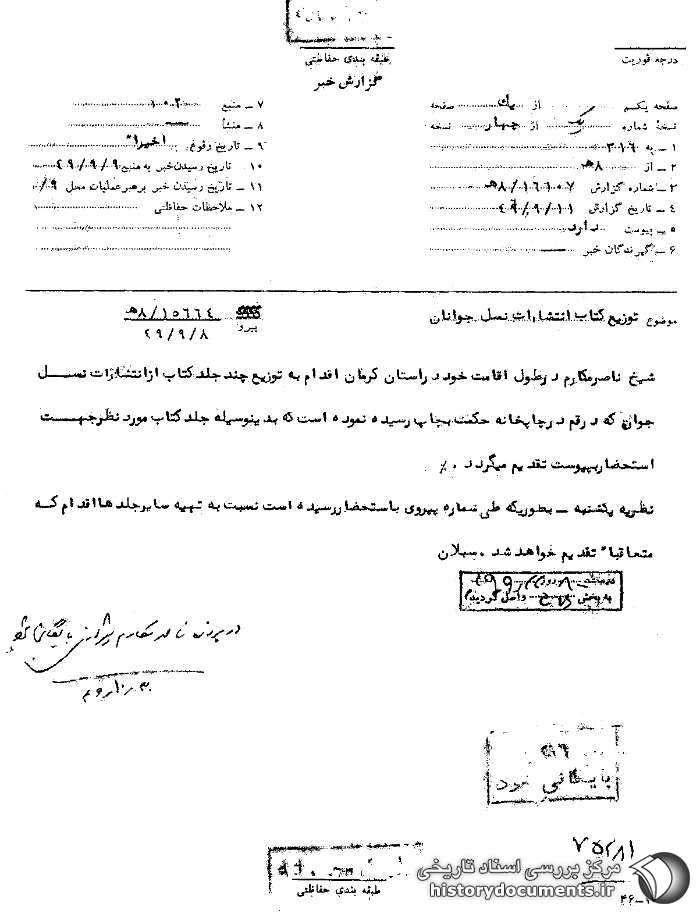 درجه فوریت
طبقه بندی حفاظتی
گزارش خبر
صفحه یکم از یک صفحه
نسخه شماره یک از چهار نسخه
۱ – به ۳۱۶
۲ – از ۸ﻫ
۳ – شماره گزارش ۸/۱۶۱۰۷ﻫ
۴ – تاریخ گزارش ۴۹/۹/۱۱
۵ – پیوست دارد
۶ – گیرندگان خبر —
۷ – منبع ۱۰۰۲
۸ – منشأ —
۹ – تاریخ وقوع اخیرا"
۱۰ – تاریخ رسیدن خبر به منبع ۴۹/۹/۹
۱۱ – تاریخ رسیدن خبر برهبر عملیات محل ۹/
۱۲ – ملاحظات حفاظتی
موضوع توزیع کتاب انتشارات نسل جوانان
پیرو ۸/۱۵۶۶۴ﻫ
۲۹/۹/۸
شیخ ناصرمکارم در طول اقامت خود در استان کرمان اقدام به توزیع چند جلد کتاب از انتشارات نســل
جوان که در قم در چاپخانه حکمت بچاپ رسیده نموده است که بدینوسیله جلد کتاب مورد نظر جهــت
استحضار بپیوست تقدیم میگردد ٠٪
نظریه یکشنبه – بطوریکه طی شماره پیروی باستحضار رسیده است نسبت به تهیه سایر جلد ها اقدام کــه
متعاقبا" تقدیم خواهد شد ٠ سبلان
به بخش واصل گردید
در پرونده ناصر مکارم شیرازی بایگانی شود
بایگانی شود
۷۵۲۸۱
طبقه بندی حفاظتی
مرکز بررسی اسناد تاریخی
historydocuments.ir